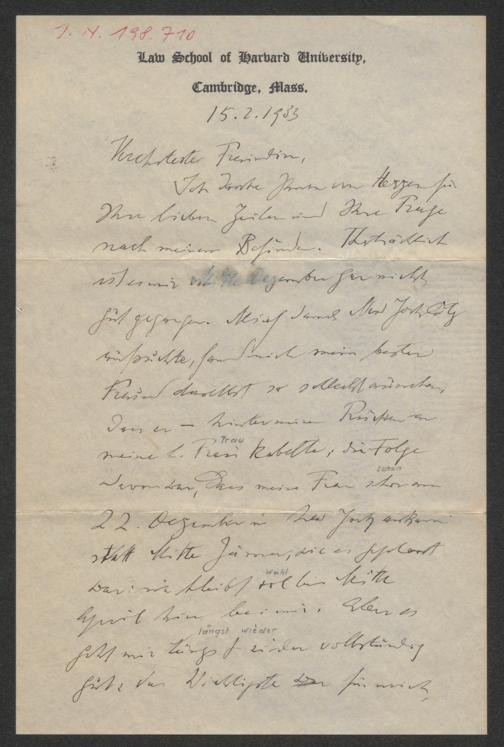 I. N. 198.710
Law School of Harvard University,
Cambridge, Mass.
15.2.1933
Verehrteste Freundin,
Ich danke Ihnen von Herzen für
Ihre lieben Zeilen und Ihre Frage
nach meinem Befinden. Thatsächlich
ist es mir seit Mitte Dezember gar nicht
gut gegangen. Als ich damals New York
aufsuchte, fand mich mein bester
Freund daselbst so schlecht aussehen,
dass er – hinter meinem Rücken an
meine l. Frau
Frau kabelte; die Folge
davon war, dass meine Frau schon am
schon
22. Dezember in New York ankam
statt Mitte Jänner, wie es geplant
war; sie bleibt wohl bis Mitte
wohl
April hier bei mir. Aber es
geht mir längst wieder vollständig
längst wieder
gut; das Wichtigste für mich,